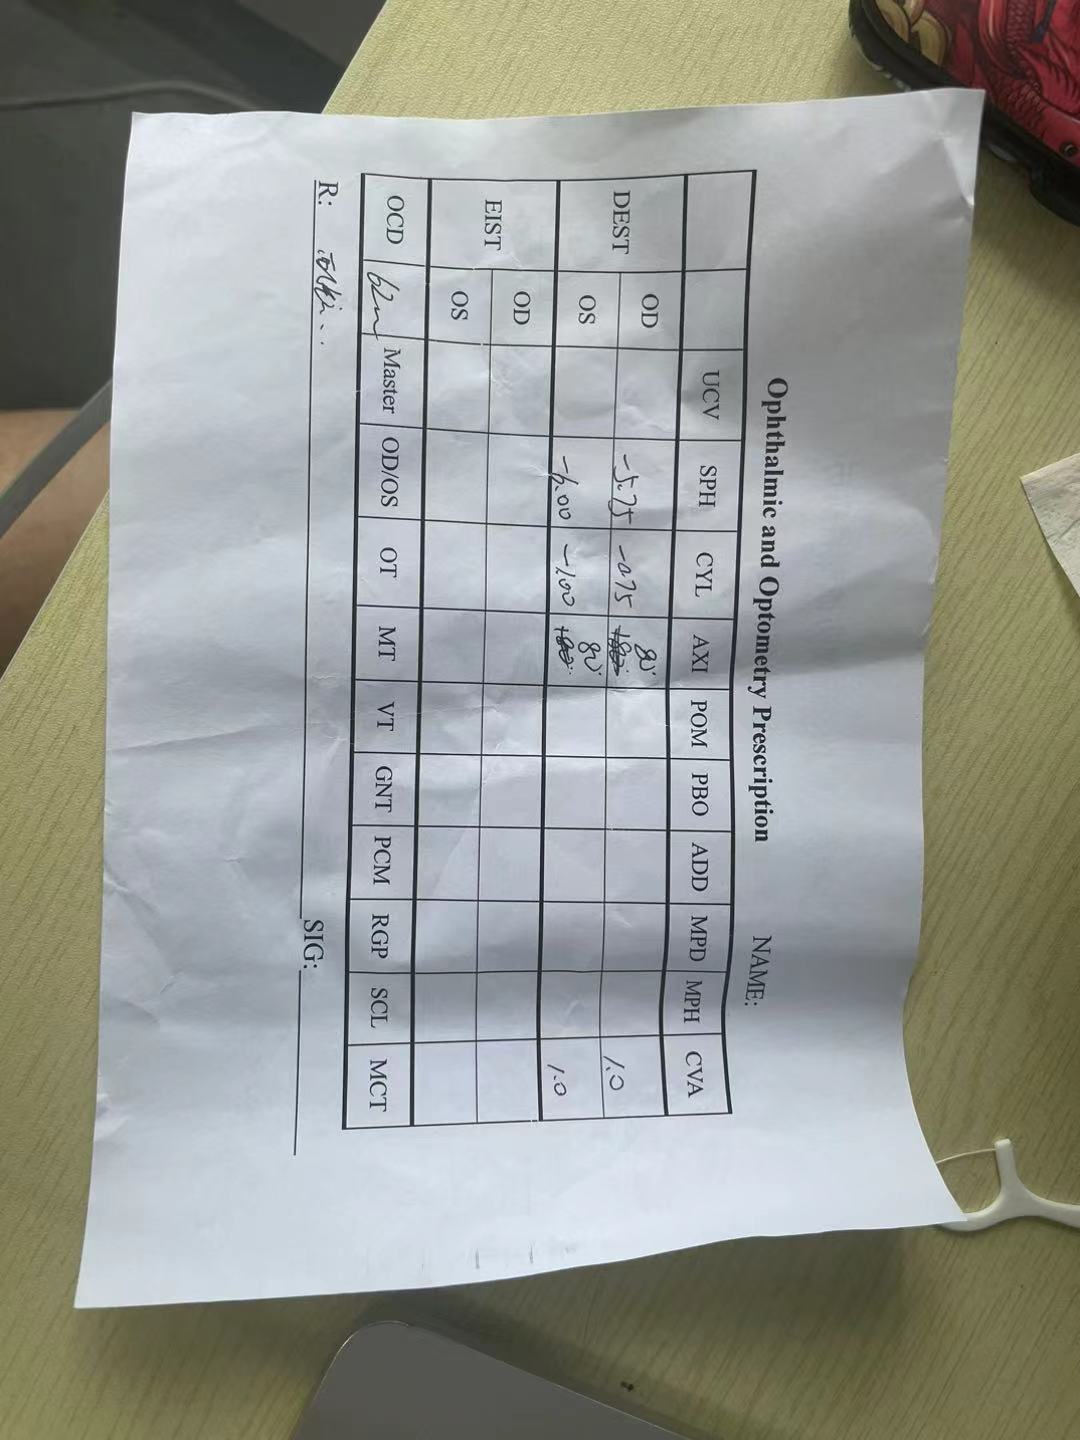 Ophthalmic and Optometry Prescription NAME:
UCV SPH CYL AXI POM PBO ADD MPD MPH CVA
DEST OD -5.75 -0.75 80° 1.0
OS -6.00 -1.00 80° 1.0
EIST OD
OS
OCD Master OD/OS OT MT VT GNT PCM RGP SCL MCT
R: SIG: